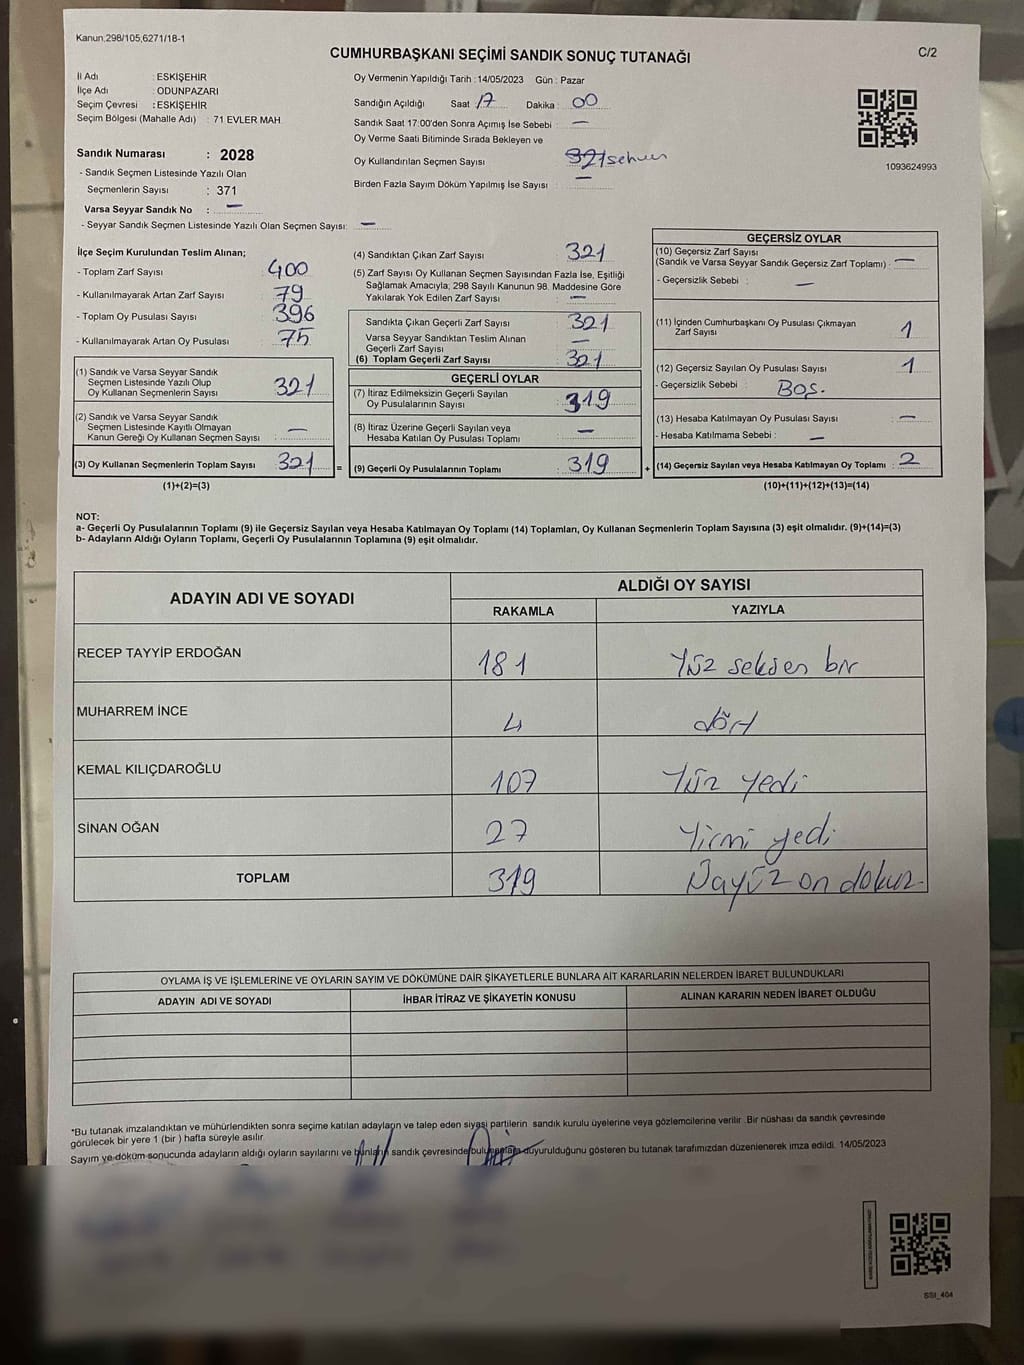 Kanun,298/105,6271/18-1
CUMHURBAŞKANI SEÇİMİ SANDIK SONUÇ TUTANAĞI
C/2
İl Adı : ESKİŞEHİR
İlçe Adı : ODUNPAZARI
Seçim Çevresi : ESKİŞEHİR
Seçim Bölgesi (Mahalle Adı) : 71 EVLER MAH
Sandık Numarası : 2028
- Sandık Seçmen Listesinde Yazılı Olan
Seçmenlerin Sayısı : 371
Varsa Seyyar Sandık No : —
- Seyyar Sandık Seçmen Listesinde Yazılı Olan Seçmen Sayısı: —
Oy Vermenin Yapıldığı Tarih : 14/05/2023 Gün : Pazar
Sandığın Açıldığı Saat : 17 Dakika : 00
Sandık Saat 17:00'den Sonra Açımış İse Sebebi : —
Oy Verme Saati Bitiminde Sırada Bekleyen ve
Oy Kullandırılan Seçmen Sayısı : 321 sehven
Birden Fazla Sayım Döküm Yapılmış İse Sayısı : —
1093624993
İlçe Seçim Kurulundan Teslim Alınan;
- Toplam Zarf Sayısı : 400
- Kullanılmayarak Artan Zarf Sayısı : 79
- Toplam Oy Pusulası Sayısı : 396
- Kullanılmayarak Artan Oy Pusulası : 75
(1) Sandık ve Varsa Seyyar Sandık
Seçmen Listesinde Yazılı Olup
Oy Kullanan Seçmenlerin Sayısı : 321
(2) Sandık ve Varsa Seyyar Sandık
Seçmen Listesinde Kayıtlı Olmayan
Kanun Gereği Oy Kullanan Seçmen Sayısı : —
(3) Oy Kullanan Seçmenlerin Toplam Sayısı : 321 =
(1)+(2)=(3)
(4) Sandıktan Çıkan Zarf Sayısı : 321
(5) Zarf Sayısı Oy Kullanan Seçmen Sayısından Fazla İse, Eşitliği
Sağlamak Amacıyla, 298 Sayılı Kanunun 98. Maddesine Göre
Yakılarak Yok Edilen Zarf Sayısı : —
Sandıkta Çıkan Geçerli Zarf Sayısı : 321
Varsa Seyyar Sandıktan Teslim Alınan
Geçerli Zarf Sayısı : —
(6) Toplam Geçerli Zarf Sayısı : 321
GEÇERLİ OYLAR
(7) İtiraz Edilmeksizin Geçerli Sayılan
Oy Pusulalarının Sayısı : 319
(8) İtiraz Üzerine Geçerli Sayılan veya
Hesaba Katılan Oy Pusulası Toplamı : —
(9) Geçerli Oy Pusulalarının Toplamı : 319 +
GEÇERSİZ OYLAR
(10) Geçersiz Zarf Sayısı
(Sandık ve Varsa Seyyar Sandık Geçersiz Zarf Toplamı) : —
- Geçersizlik Sebebi : —
(11) İçinden Cumhurbaşkanı Oy Pusulası Çıkmayan
Zarf Sayısı 1
(12) Geçersiz Sayılan Oy Pusulası Sayısı 1
- Geçersizlik Sebebi : Boş.
(13) Hesaba Katılmayan Oy Pusulası Sayısı : —
- Hesaba Katılmama Sebebi : —
(14) Geçersiz Sayılan veya Hesaba Katılmayan Oy Toplamı : 2
(10)+(11)+(12)+(13)=(14)
NOT:
a- Geçerli Oy Pusulalarının Toplamı (9) ile Geçersiz Sayılan veya Hesaba Katılmayan Oy Toplamı (14) Toplamları, Oy Kullanan Seçmenlerin Toplam Sayısına (3) eşit olmalıdır. (9)+(14)=(3)
b- Adayların Aldığı Oyların Toplamı, Geçerli Oy Pusulalarının Toplamına (9) eşit olmalıdır.
ADAYIN ADI VE SOYADI
ALDIĞI OY SAYISI
RAKAMLA YAZIYLA
RECEP TAYYİP ERDOĞAN 181 Yüz seksen bir
MUHARREM İNCE 4 dört
KEMAL KILIÇDAROĞLU 107 Yüz yedi
SİNAN OĞAN 27 Yirmi yedi
TOPLAM 319 Üçyüz on dokuz.
OYLAMA İŞ VE İŞLEMLERİNE VE OYLARIN SAYIM VE DÖKÜMÜNE DAİR ŞİKAYETLERLE BUNLARA AİT KARARLARIN NELERDEN İBARET BULUNDUKLARI
ADAYIN ADI VE SOYADI İHBAR İTİRAZ VE ŞİKAYETİN KONUSU ALINAN KARARIN NEDEN İBARET OLDUĞU
*Bu tutanak imzalandıktan ve mühürlendikten sonra seçime katılan adayların ve talep eden siyasi partilerin sandık kurulu üyelerine veya gözlemcilerine verilir .Bir nüshası da sandık çevresinde
görülecek bir yere 1 (bir ) hafta süreyle asılır.
Sayım ve döküm sonucunda adayların aldığı oyların sayılarını ve bunların sandık çevresinde bulunanlara duyurulduğunu gösteren bu tutanak tarafımızdan düzenlenerek imza edildi. 14/05/2023
SSI_404